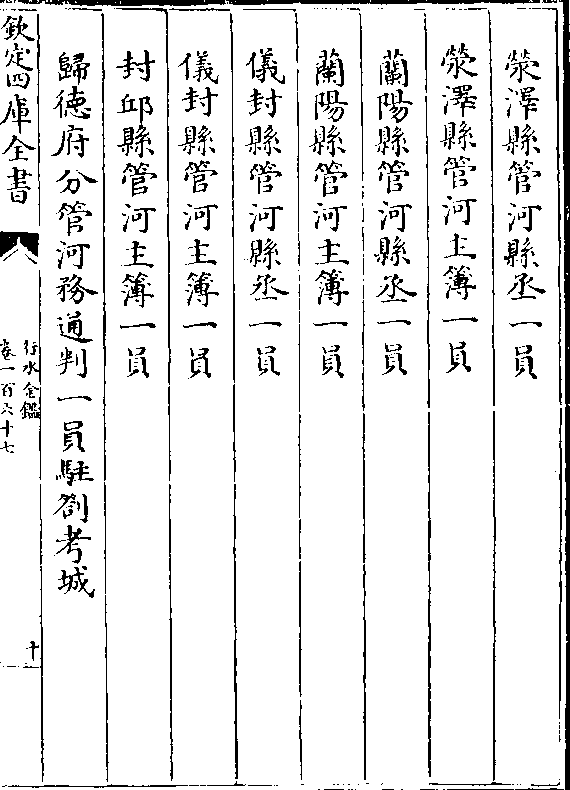 滎澤縣管河縣丞一員
滎澤縣管河主簿一員
蘭陽縣管河縣丞一員
蘭陽縣管河主簿一員
儀封縣管河縣丞一員
儀封縣管河主簿一員
封邱縣管河主簿一員
歸德府分管河務通判一員駐劄考城
欽定四庫全書
行水金鑑
卷一百六十七
十